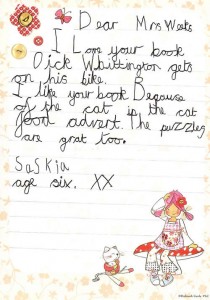 Dear Mrs Weeks
I Love your book
Dick Whittington gets
on his bike.
I like your book Because
of the cat in the cat
food advert. The puzzles
are grat too.
Saskia
age six. XX